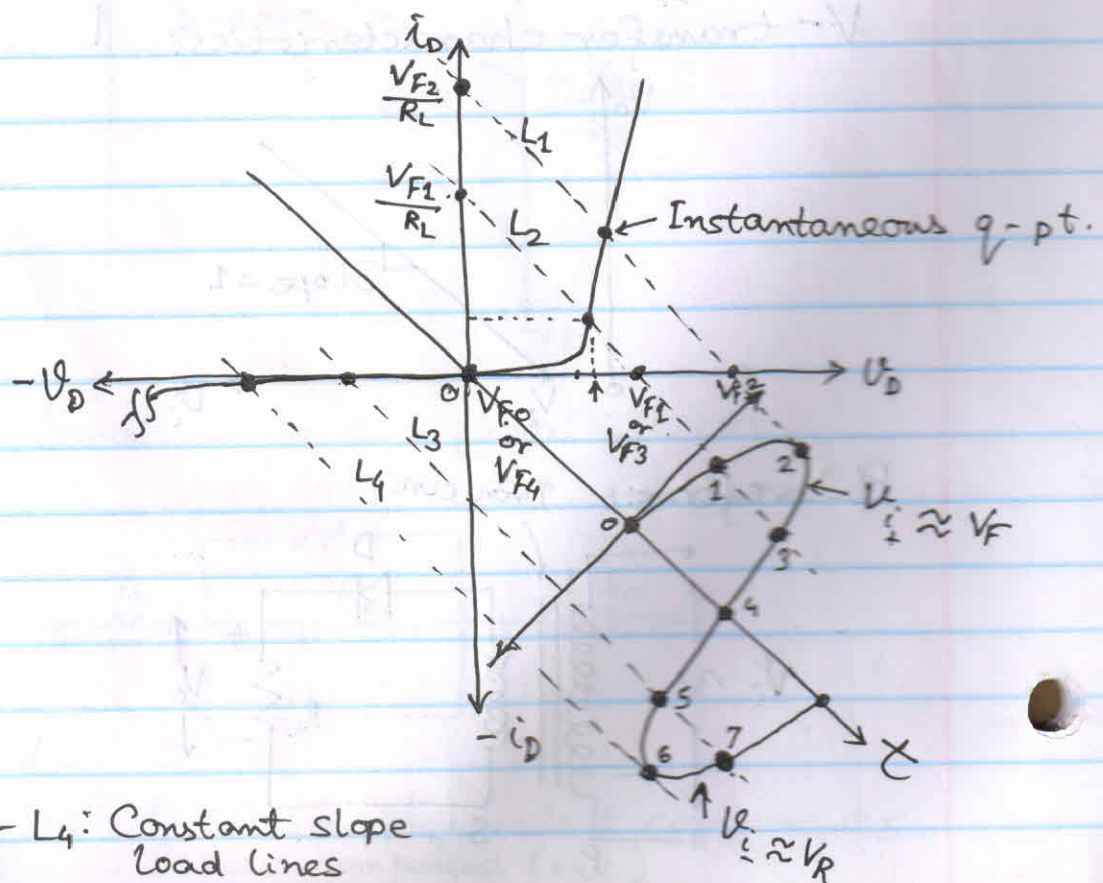 i_D
V_F2 / R_L
L1
V_F1 / R_L
L2
Instantaneous q-pt.
-v_D
0
v_D
V_F0 or V_F4
V_F1 or V_F3
V_F2
L3
L4
0
1
2
3
4
5
6
7
v_i+ ≈ V_F
-i_D
t
v_i- ≈ V_R
- L4: Constant slope
load lines